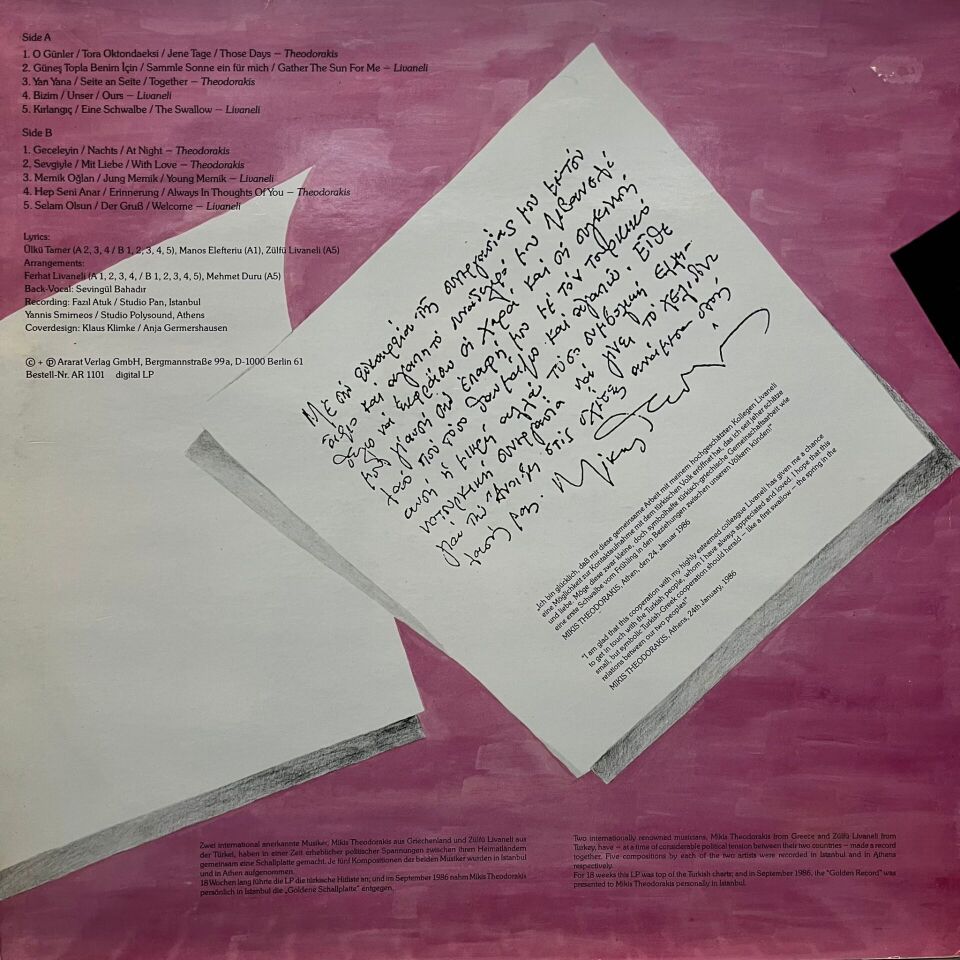 Side A
1. O Günler / Tora Oktondaeksi / Jene Tage / Those Days – Theodorakis
2. Güneş Topla Benim İçin / Sammle Sonne ein für mich / Gather The Sun For Me – Livaneli
3. Yan Yana / Seite an Seite / Together – Theodorakis
4. Bizim / Unser / Ours – Livaneli
5. Kırlangıç / Eine Schwalbe / The Swallow – Livaneli
Side B
1. Geceleyin / Nachts / At Night – Theodorakis
2. Sevgiyle / Mit Liebe / With Love – Theodorakis
3. Memik Oğlan / Jung Memik / Young Memik – Livaneli
4. Hep Seni Anar / Erinnerung / Always In Thoughts Of You – Theodorakis
5. Selam Olsun / Der Gruß / Welcome – Livaneli
Lyrics:
Ülkü Tamer (A 2, 3, 4 / B 1, 2, 3, 4, 5), Manos Elefteriu (A1), Zülfü Livaneli (A5)
Arrangements:
Ferhat Livaneli (A 1, 2, 3, 4, / B 1, 2, 3, 4, 5), Mehmet Duru (A5)
Back-Vocal: Sevingül Bahadır
Recording: Fazıl Atuk / Studio Pan, Istanbul
Yannis Smirneos / Studio Polysound, Athens
Coverdesign: Klaus Klimke / Anja Germershausen
© + ℗ Ararat Verlag GmbH, Bergmannstraße 99a, D-1000 Berlin 61
Bestell-Nr. AR 1101 digital LP
Μὲ τὴν εὐκαιρία τῆς συνεργασίας μου μὲ τόν
ἄξιο καὶ ἀγαπητό συνάδελφό μου Λιβανελί
θέλω νὰ ἐκφράσω τὴ χαρά καὶ τὴ συγκίνησή
μου γι' αὐτή τὴν ἐπαφή μου μὲ τόν τουρκικό
λαό πού τόσο θαυμάζω καὶ ἀγαπῶ. Εἴθε
αὐτή ἡ μικρή ἀλλά τόσο συμβολική ἑλλη-
νοτουρκική συνεργασία νά γίνει τό χελιδόνι
γιά τὴν Ἄνοιξη στίς σχέσεις ἀνάμεσα στούς
λαούς μας. Μίκης
„Ich bin glücklich, daß mir diese gemeinsame Arbeit mit meinem hochgeschätzten Kollegen Livaneli
eine Möglichkeit zur Kontaktaufnahme mit dem türkischen Volk eröffnet hat, das ich seit jeher schätze
und liebe. Möge diese zwar kleine, doch symbolhafte türkisch-griechische Gemeinschaftsarbeit wie
eine erste Schwalbe vom Frühling in den Beziehungen zwischen unseren Völkern künden!"
MIKIS THEODORAKIS, Athen, den 24. Januar 1986
"I am glad that this cooperation with my highly esteemed colleague Livaneli has given me a chance
to get in touch with the Turkish people, whom I have always appreciated and loved. I hope that this
small, but symbolic Turkish-Greek cooperation should herald – like a first swallow – the spring in the
relations between our two peoples!"
MIKIS THEODORAKIS, Athens, 24th January, 1986
Zwei international anerkannte Musiker, Mikis Theodorakis aus Griechenland und Zülfü Livaneli aus
der Türkei, haben in einer Zeit erheblicher politischer Spannungen zwischen ihren Heimatländern
gemeinsam eine Schallplatte gemacht. Je fünf Kompositionen der beiden Musiker wurden in Istanbul
und in Athen aufgenommen.
18 Wochen lang führte die LP die türkische Hitliste an; und im September 1986 nahm Mikis Theodorakis
persönlich in Istanbul die „Goldene Schallplatte" entgegen.
Two internationally renowned musicians, Mikis Theodorakis from Greece and Zülfü Livaneli from
Turkey, have – at a time of considerable political tension between their two countries – made a record
together. Five compositions by each of the two artists were recorded in Istanbul and in Athens
respectively.
For 18 weeks this LP was top of the Turkish charts; and in September 1986, the "Golden Record" was
presented to Mikis Theodorakis personally in Istanbul.